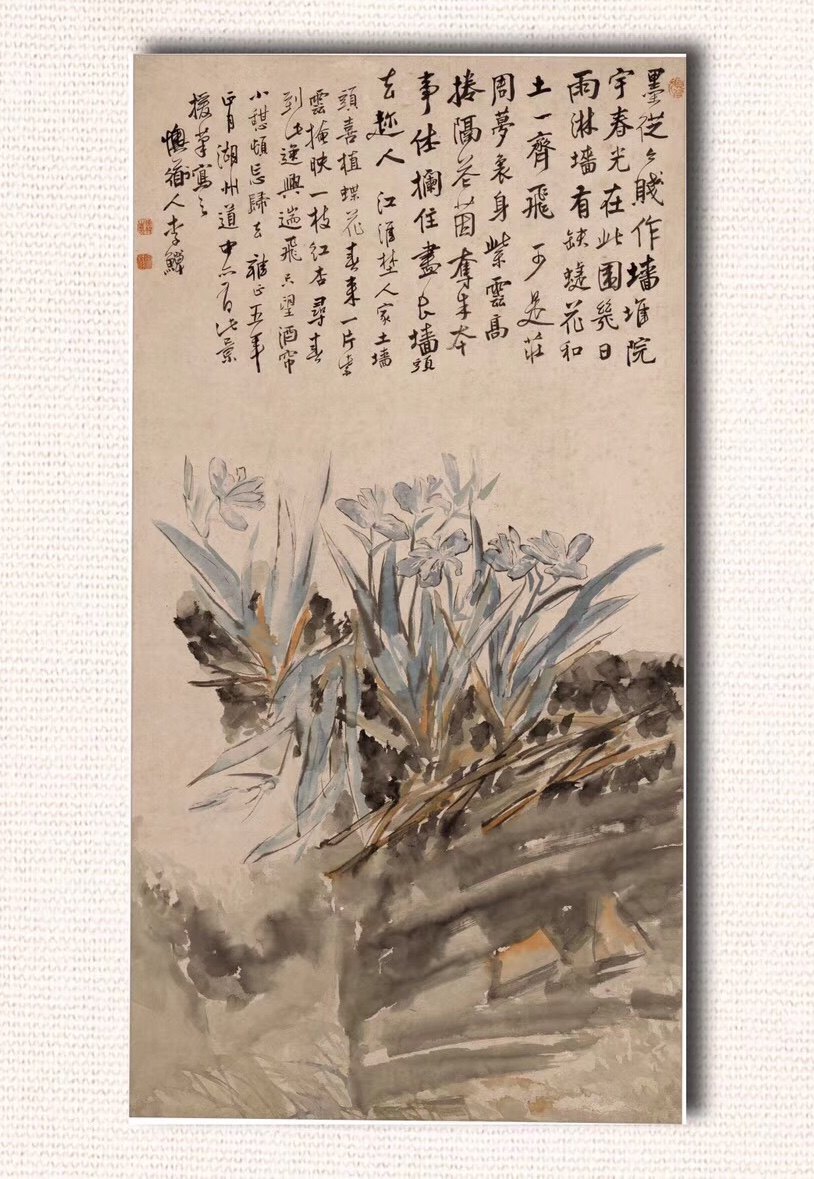 墨從今賤作墻堆院
宇春光在此圍幾日
雨淋墻有缺蝶花和
土一齊飛 可是莊
周夢裏身紫雲高
捲隔花茵奪朱本
事誰攔住盡長墻頭
去趂人 江淮埜人家土墻
頭喜植蝶花春來一片紫
雲掩映一枝紅杏尋春
到此逸興遄飛只望酒帘
小憩頓忘歸去 雍正五年
正月湖州道中亦有此景
援筆寫之
懊道人李鱓